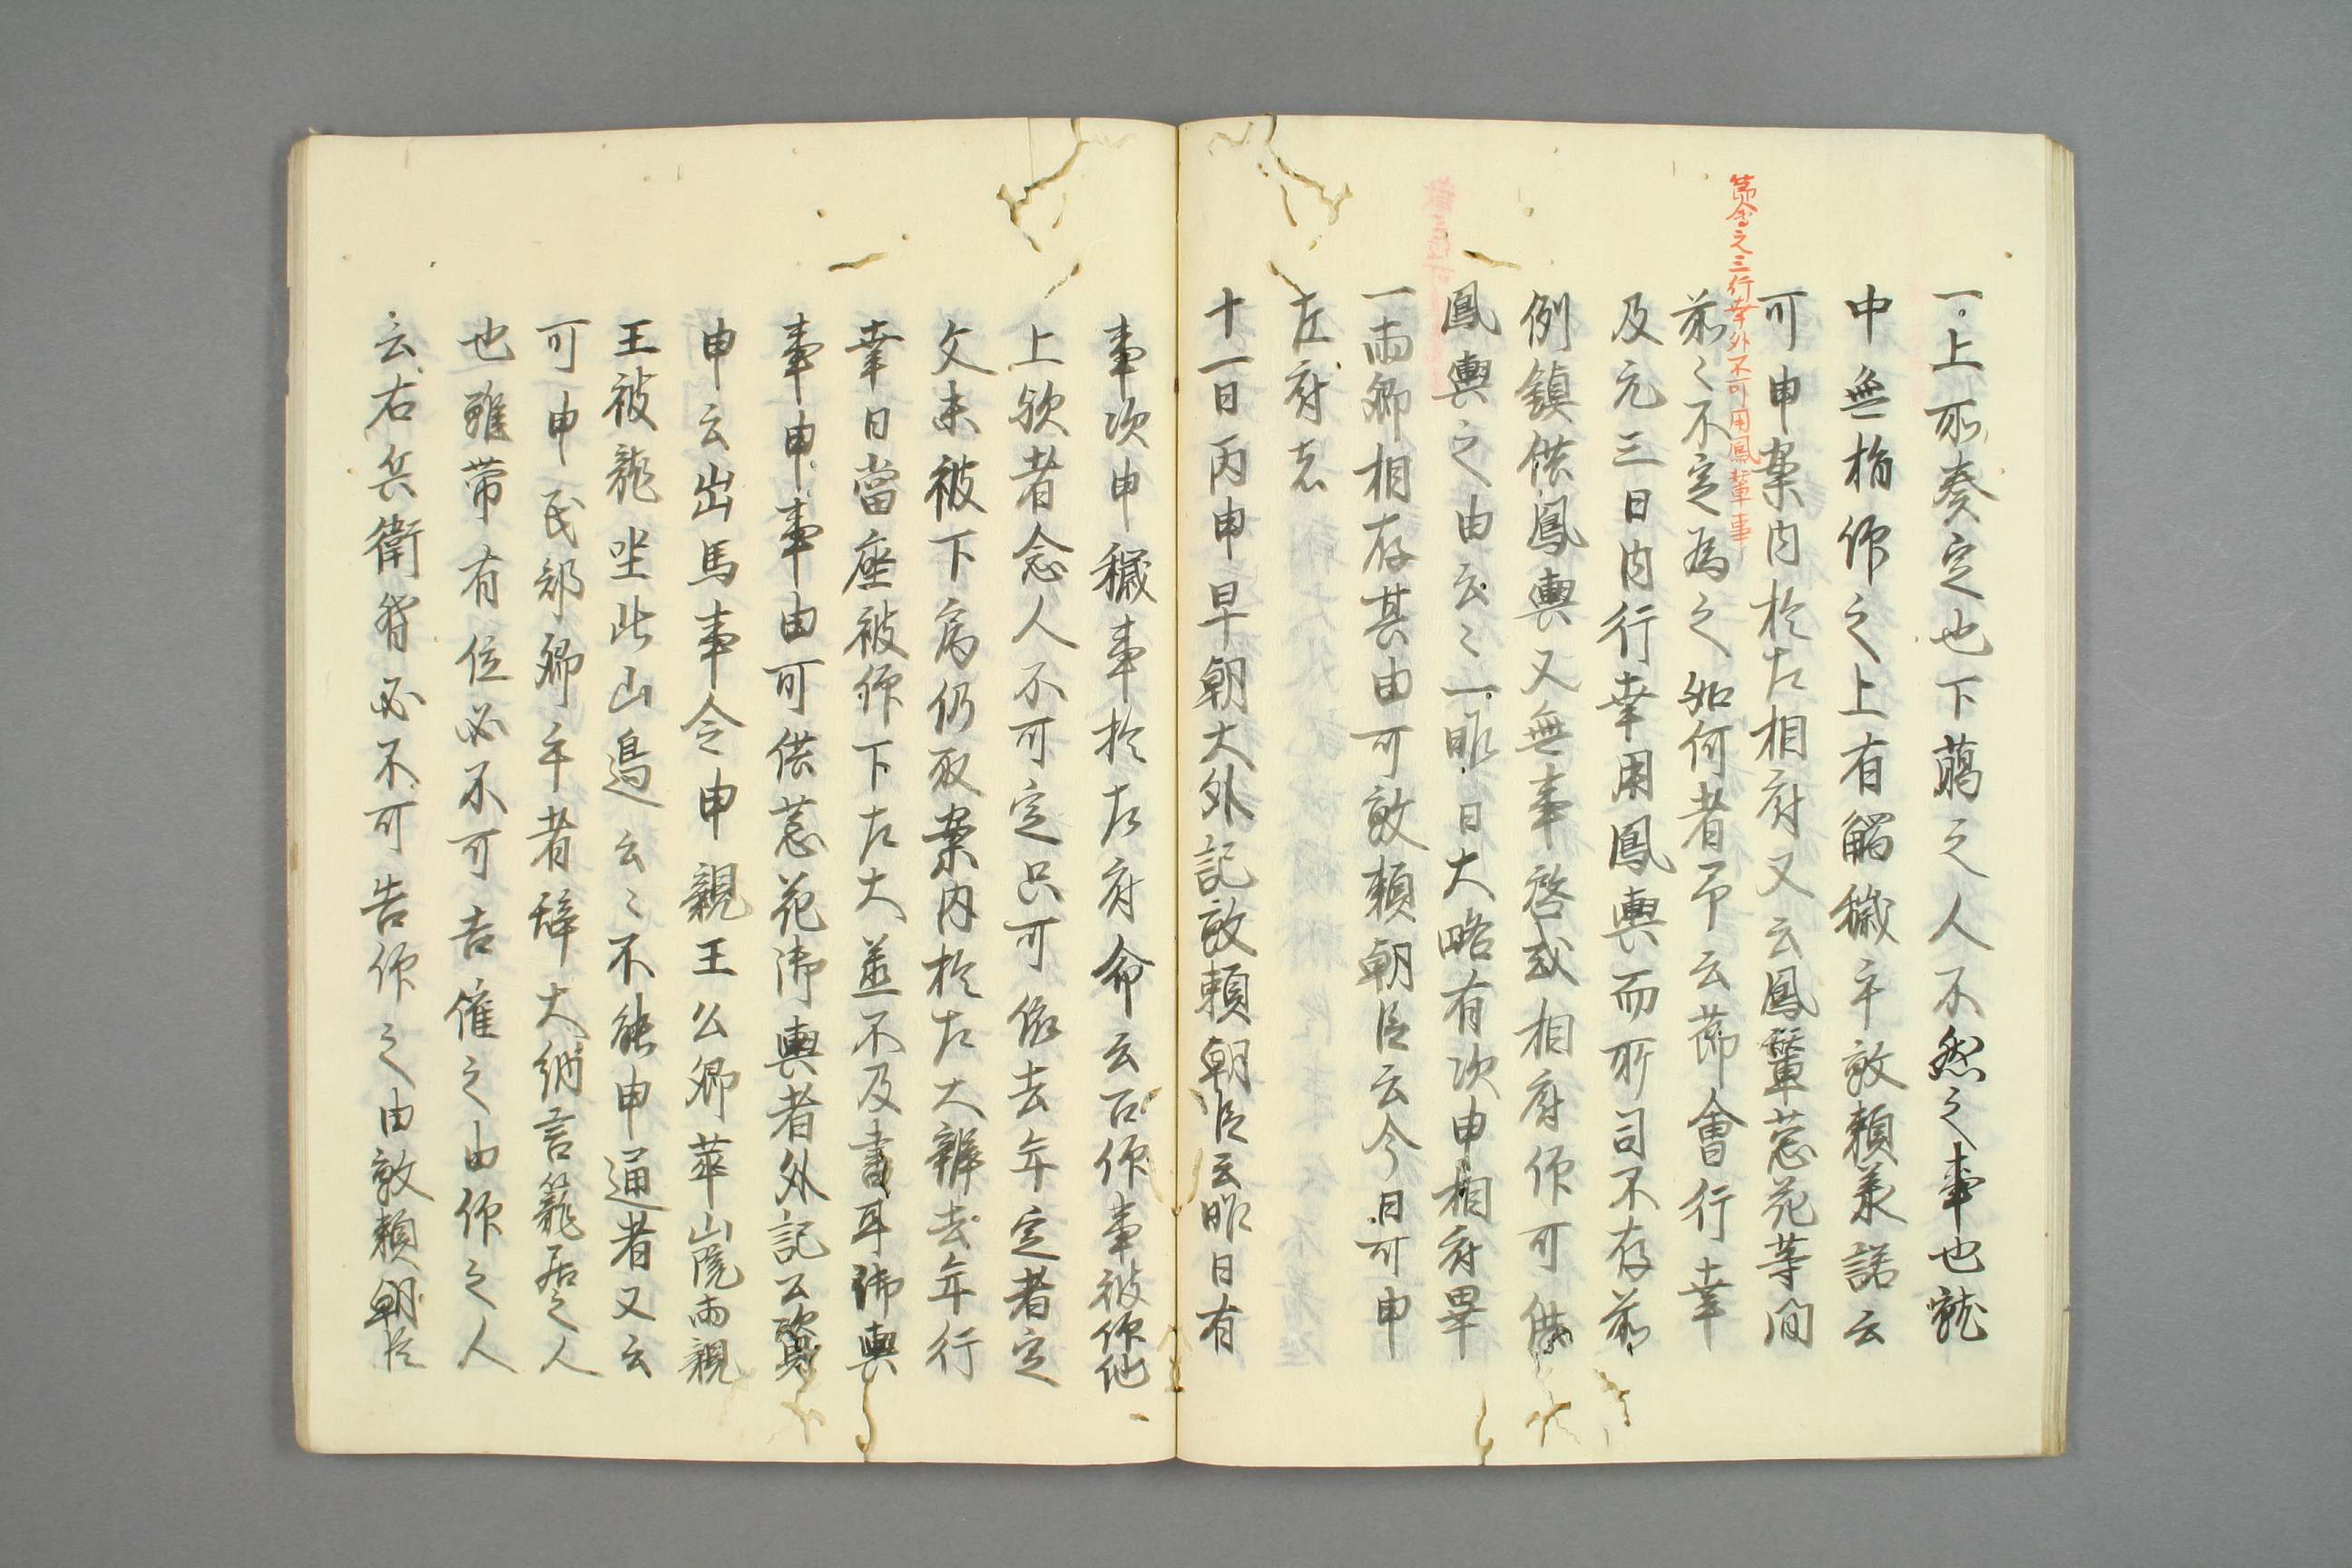 節會元三行幸外不可用鳳輦事
一上所奏定也下﨟之人不然之事也就
中無指仰之上有觸穢乎敦頼承諾云
可申案内於左相府又云鳳輦葱花等間
前〻不定為之如何者予云節會行幸
及元三日内行幸用鳳輿而所司不存前
例鎮供鳳輿又無事啓或相府仰可供
鳳輿之由云〻一昨日大略有次申相府畢
一両卿相存其由可敦頼朝臣云今日可申
左府者
十一日丙申早朝大外記敦頼朝臣云昨日有
事次申穢事於左府命云召仰事被仰他
上欤者念人不可定只可依去年定者定
文未被下为仍取案内於左大辨去年行
幸日當座被仰下左大並不及書耳御輿
事申事由可供葱花御輿者外記公資
申云出馬事令申親王公卿華山院両親
王被籠坐此山邊云〻不能申通者又云
可申民部卿乎者辞大納言籠居之人
也雖帯有位必不可告催之由仰之人
云右兵衛督必不可告仰之由敦頼朝臣